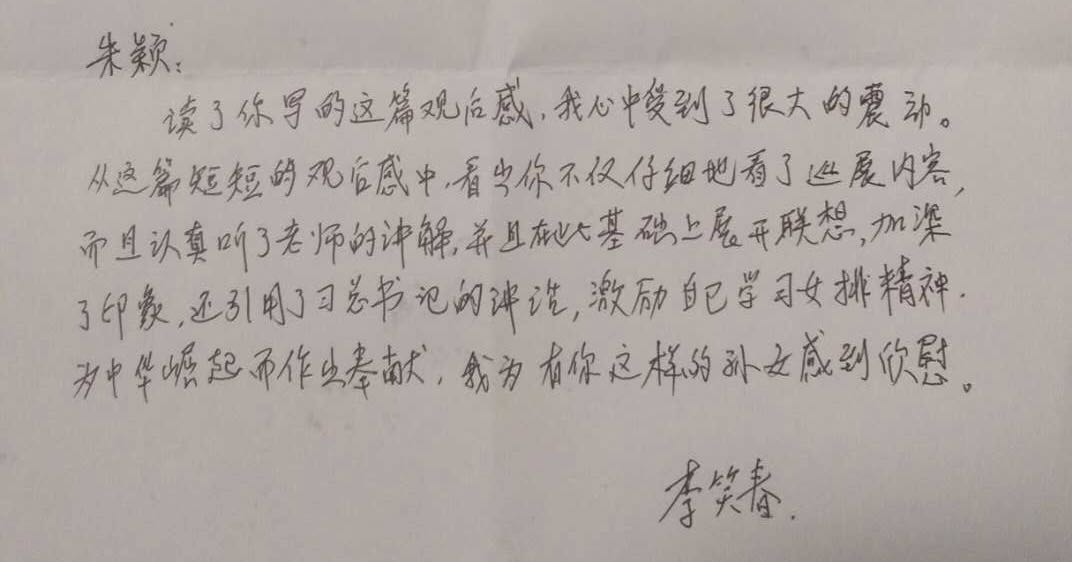 朱颖:
读了你写的这篇观后感,我心中受到了很大的震动。
从这篇短短的观后感中,看出你不仅仔细地看了巡展内容,
而且认真听了老师的讲解,并且在此基础上展开联想,加深
了印象,还引用了习总书记的讲话,激励自己学习女排精神.
为中华崛起而作出奉献,我为有你这样的孙女感到欣慰。
李笑春.